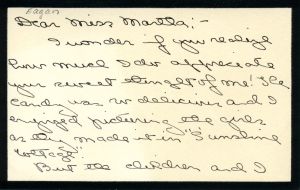 Eagan
Dear Miss Martha;-
I wonder if you realize
how much I do appreciate
your sweet thought of me! The
candy was so delicious and I
enjoyed picturing the girls
as they made it in "Sunshine
Cottage".
But the children and I